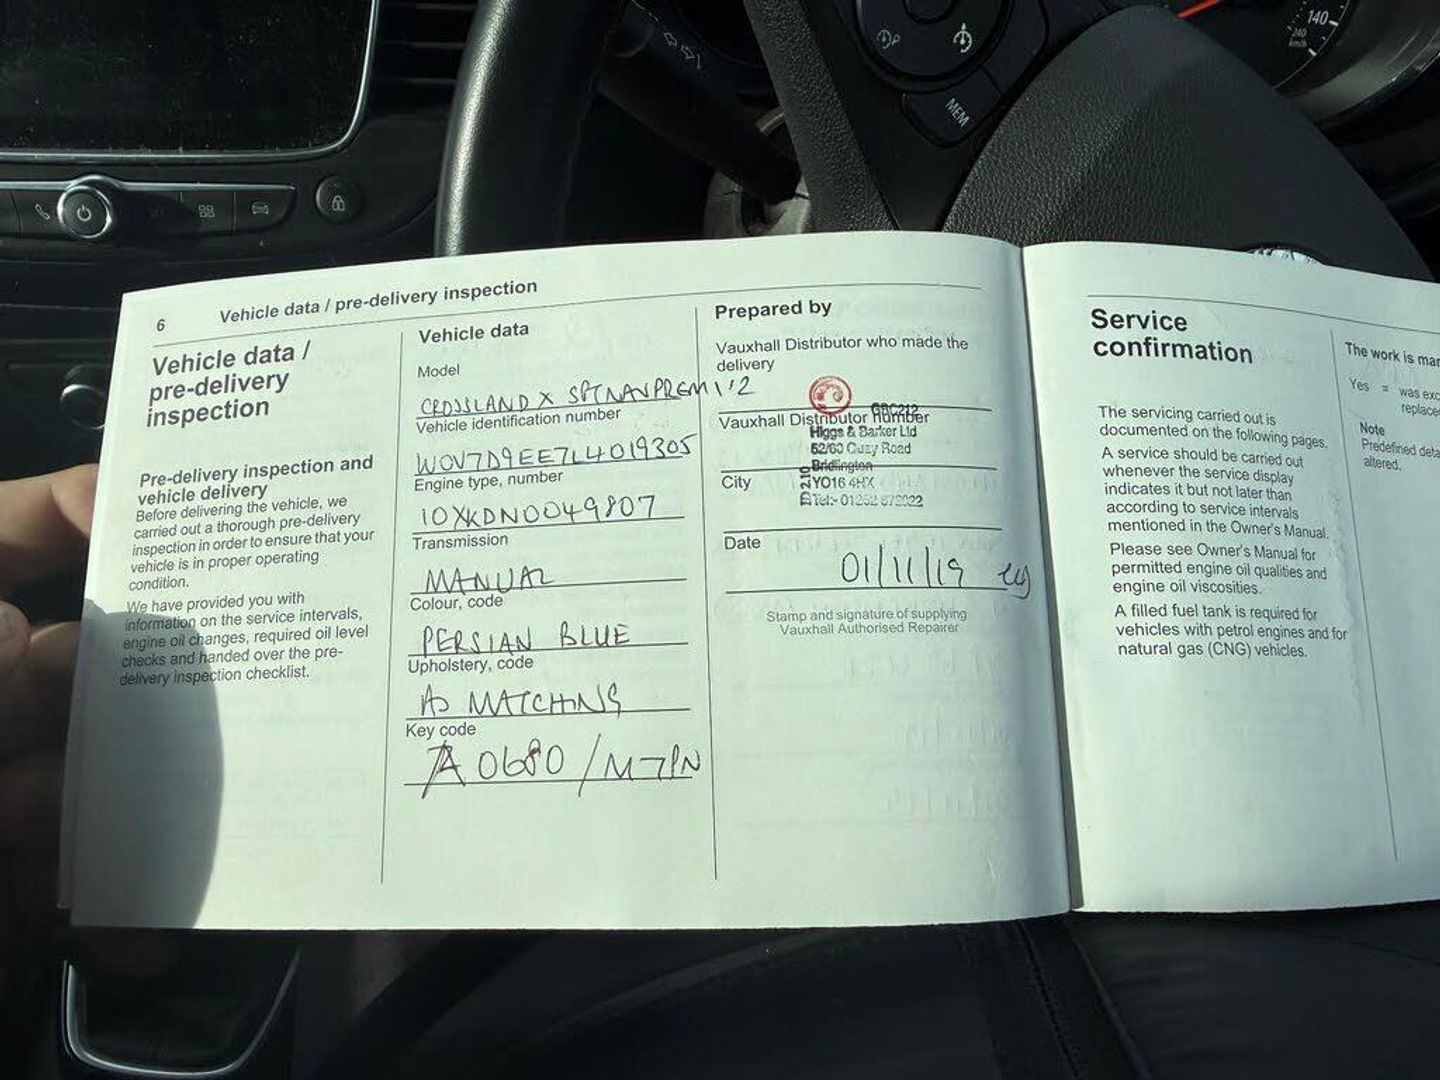 140
240
km/h
MEM
6 Vehicle data / pre-delivery inspection
Vehicle data /
pre-delivery
inspection
Pre-delivery inspection and
vehicle delivery
Before delivering the vehicle, we
carried out a thorough pre-delivery
inspection in order to ensure that your
vehicle is in proper operating
condition.
We have provided you with
information on the service intervals,
engine oil changes, required oil level
checks and handed over the pre-
delivery inspection checklist.
Vehicle data
Model
CROSSLAND X SPTNAVPREM 1'2
Vehicle identification number
W0V7D9EE7L4019305
Engine type, number
10XKDN0049807
Transmission
MANUAL
Colour, code
PERSIAN BLUE
Upholstery, code
AS MATCHING
Key code
A0680/M7PN
Prepared by
Vauxhall Distributor who made the
delivery
Vauxhall Distributor number
Higgs & Barker Ltd
52/60 Quay Road
Bridlington
City
YO16 4HX
Date
01/11/19
Stamp and signature of supplying
Vauxhall Authorised Repairer
Service
confirmation
The servicing carried out is
documented on the following pages.
A service should be carried out
whenever the service display
indicates it but not later than
according to service intervals
mentioned in the Owner's Manual.
Please see Owner's Manual for
permitted engine oil qualities and
engine oil viscosities.
A filled fuel tank is required for
vehicles with petrol engines and for
natural gas (CNG) vehicles.
The work is mar
Yes = was exc
replace
Note
Predefined deta
altered.